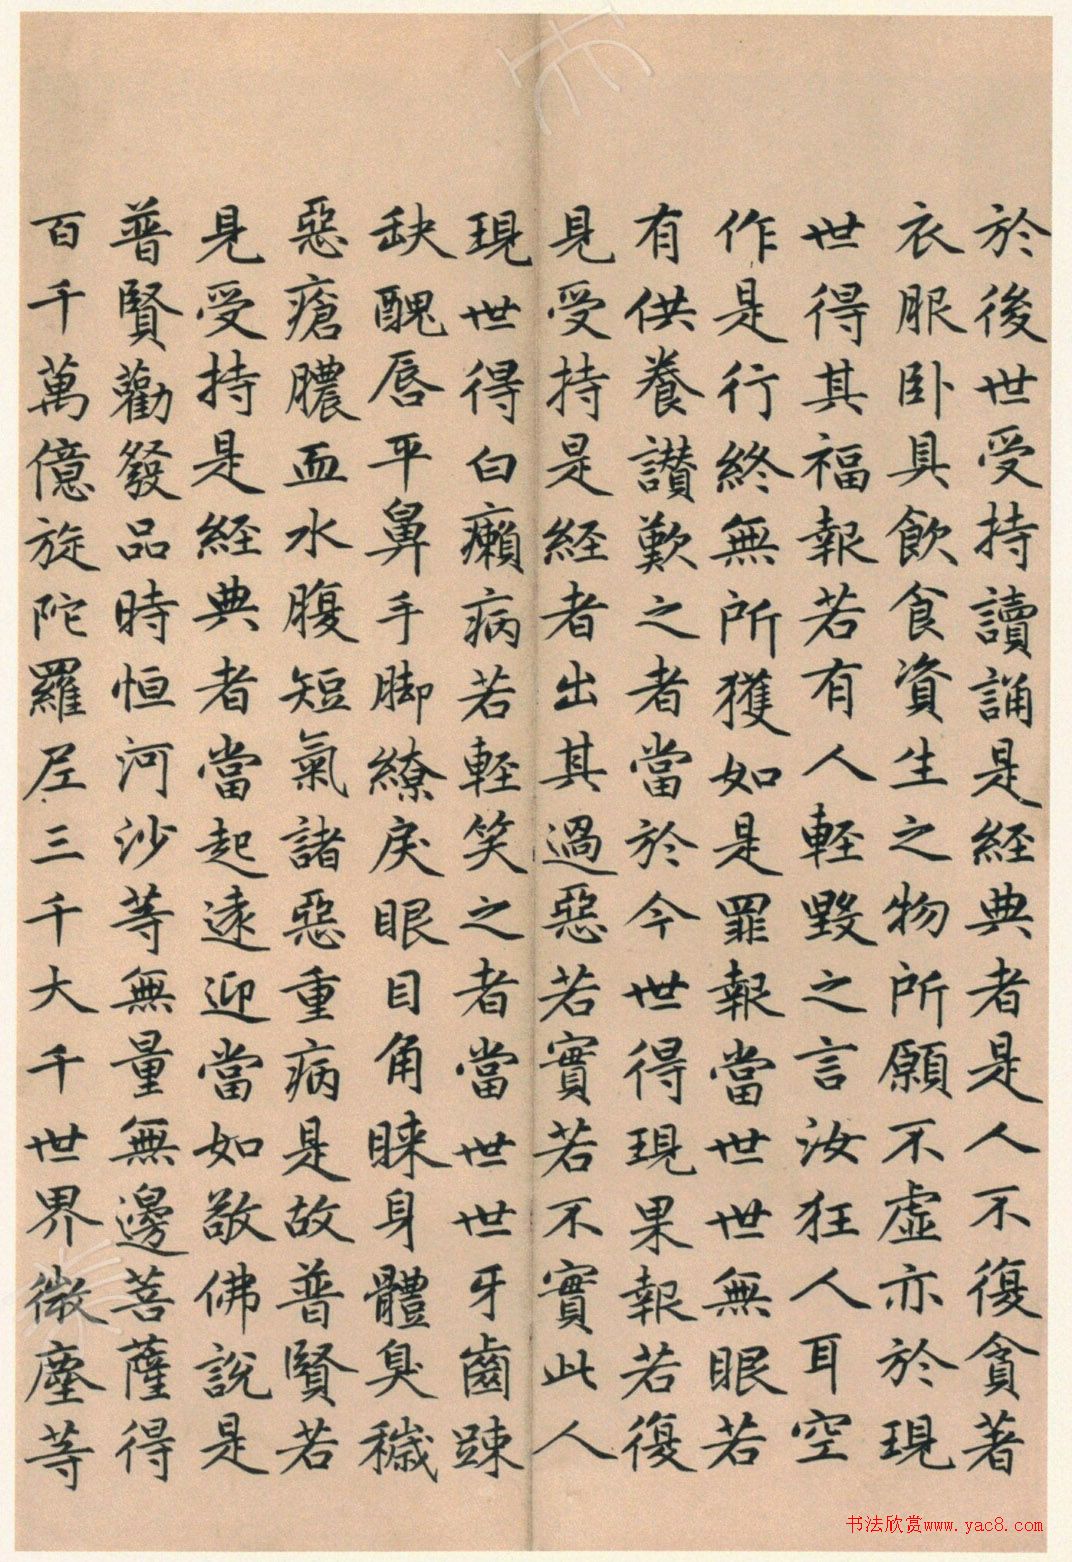 於後世受持讀誦是經典者是人不復貪著
衣服卧具飲食資生之物所願不虛亦於現
世得其福報若有人輕毀之言汝狂人耳空
作是行終無所獲如是罪報當世世無眼若
有供養讃歎之者當於今世得現果報若復
見受持是經者出其過惡若實若不實此人
現世得白癩病若輕笑之者當世世牙齒踈
缺醜唇平鼻手脚繚戾眼目角睞身體臭穢
惡瘡膿血水腹短氣諸惡重病是故普賢若
見受持是經典者當起遠迎當如敬佛說是
普賢勸發品時恒河沙等無量無邊菩薩得
百千萬億旋陀羅尼三千大千世界微塵等
书法欣赏www.yac8.com